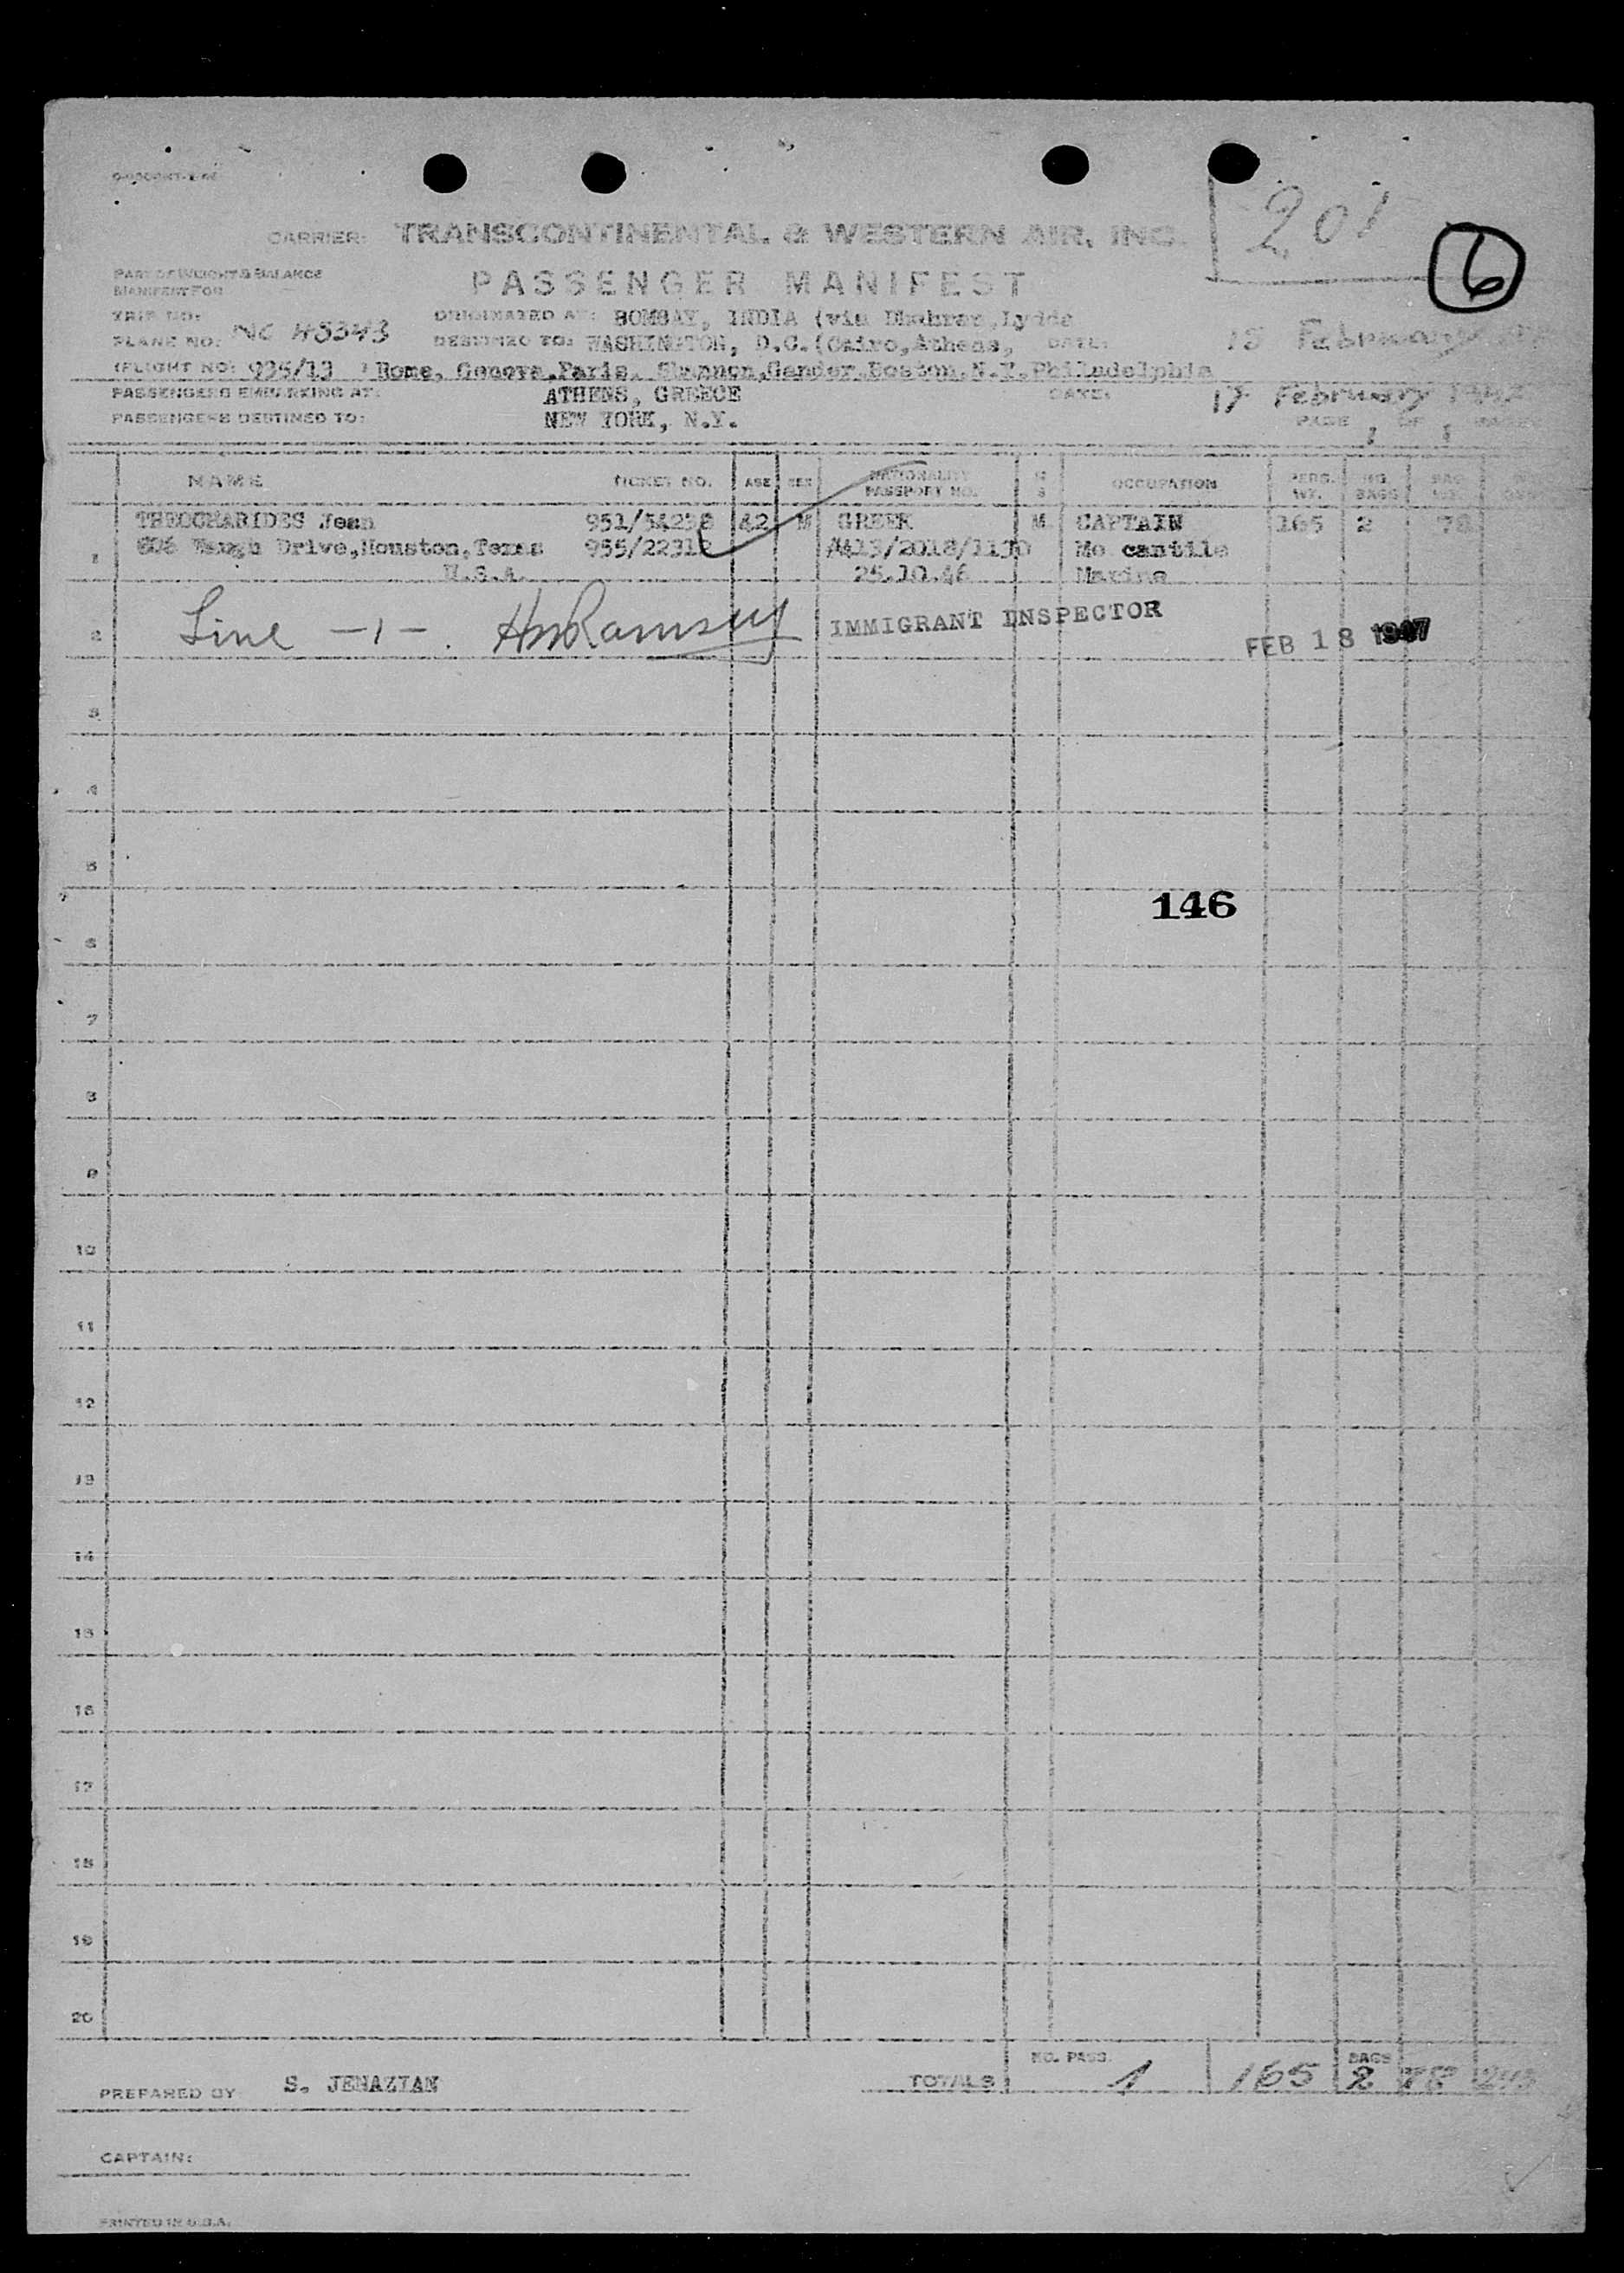 201
6
CARRIER: TRANSCONTINENTAL & WESTERN AIR, INC.
PART OF WEIGHT & BALANCE
MANIFEST FOR
PASSENGER MANIFEST
TRIP NO:
ORIGINATED AT: BOMBAY, INDIA (via Dhahran, Lydda
PLANE NO: NC 45343
DESTINED TO: WASHINGTON, D.C. (Cairo, Athens, DATE: 15 February
(FLIGHT NO: 925/13 ) Rome, Geneva, Paris, Shannon, Gander, Boston, N.Y, Philadelphia
PASSENGERS EMBARKING AT: ATHENS, GREECE DATE: 17 February 1947
PASSENGERS DESTINED TO: NEW YORK, N.Y. PAGE 1 OF 1 PAGES
NAME TICKET NO. AGE SEX NATIONALITY PASSPORT NO. M S OCCUPATION PERS. WT. NO. BAGS BAG WT.
1 THEOCHARIDES Jean 951/54238 42 M GREEK M CAPTAIN 165 2 78
Drive, Houston, Texas 955/22312 A413/2018/1130 Me cantile
U.S.A. 25.10.46 Marine
2 Line -1- HmRamsey IMMIGRANT INSPECTOR FEB 18 1947
3
4
5
146
6
7
8
9
10
11
12
13
14
15
16
17
18
19
20
PREPARED BY S. JENAZIAN TOTALS NO. PASS. 1 165 BAGS 2 78 243
CAPTAIN:
PRINTED IN U.S.A.